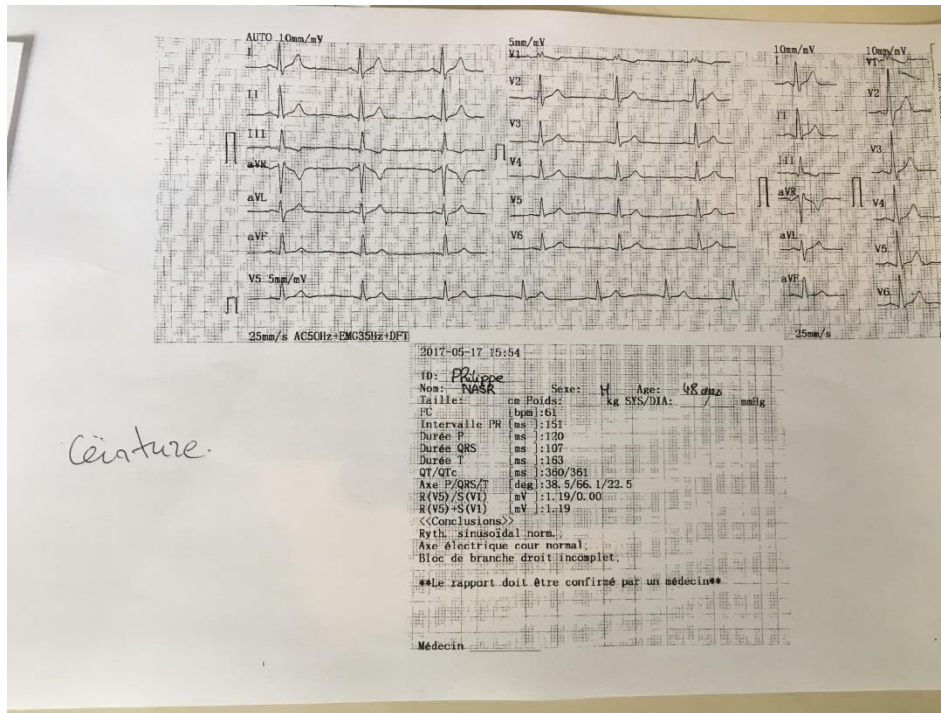 AUTO 10mm/mV
I
II
III
aVR
aVL
aVF
V5 5mm/mV
25mm/s AC50Hz+EMG35Hz+DFT
5mm/mV
V1
V2
V3
V4
V5
V6
10mm/mV
I
II
III
aVR
aVL
aVF
25mm/s
10mm/mV
V1
V2
V3
V4
V5
V6
2017-05-17 15:54
ID: Philippe
Nom: NASR Sexe: M Age: 48 ans
Taille: cm Poids: kg SYS/DIA: / mmHg
FC [bpm]:61
Intervalle PR [ms ]:151
Durée P [ms ]:120
Durée QRS [ms ]:107
Durée T [ms ]:163
QT/QTc [ms ]:360/361
Axe P/QRS/T [deg]:38.5/66.1/22.5
R(V5)/S(V1) [mV ]:1.19/0.00
R(V5)+S(V1) [mV ]:1.19
<<Conclusions>>
Ryth. sinusoïdal norm.;
Axe électrique cour normal;
Bloc de branche droit incomplet;
**Le rapport doit être confirmé par un médecin**
Médecin
Ceinture.